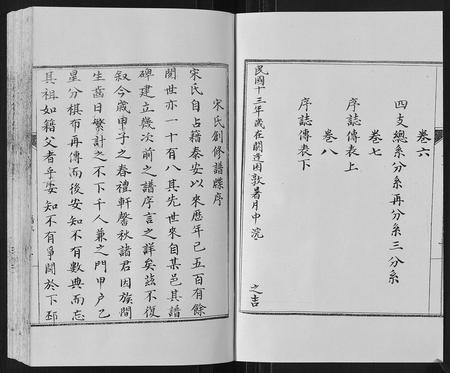 卷六
四支總系分系再分系三分系
卷七
序誌傳表上
卷八
序誌傳表下
民國十三年歲在閼逢困敦暑月中浣
之吉
宋氏創修譜牒序
宋氏自占籍泰安以來歷年已五百有餘
閱世亦一十有八其先世來自某邑其譜
碑建立幾次前之譜序言之詳矣茲不復
叙今歲甲子之春禮軒馨秋諸君因族間
生齒日繁計之不下千人兼之門甲户乙
星分棋布再傳而後安知不有數典而忘
其祖如籍父者乎安知不有爭鬭於下邳